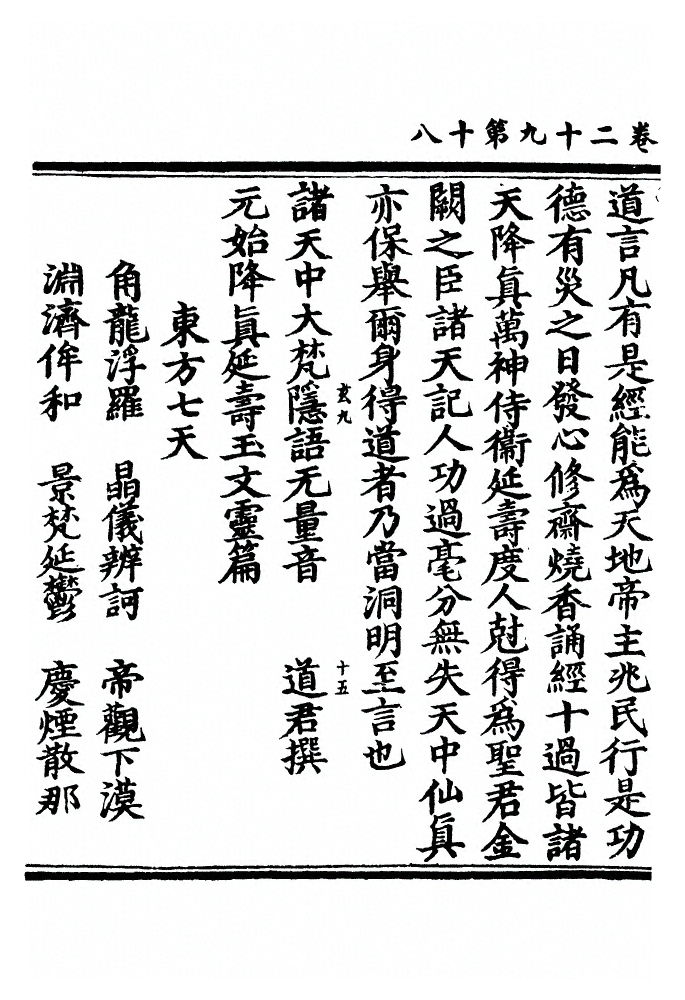 卷二十九第十八
道言凡有是經能爲天地帝主兆民行是功
德有災之日發心修齋燒香誦經十過皆諸
天降眞萬神侍衞延壽度人尅得爲聖君金
闕之臣諸天記人功過毫分無失天中仙眞
亦保舉爾身得道者乃當洞明至言也
玄九　十五
諸天中大梵隱語无量音　道君撰
元始降眞延壽玉文靈篇
東方七天
角龍浮羅　晶儀辨訶　帝觀下漠
淵濟侔和　景梵延鬱　慶煙散那